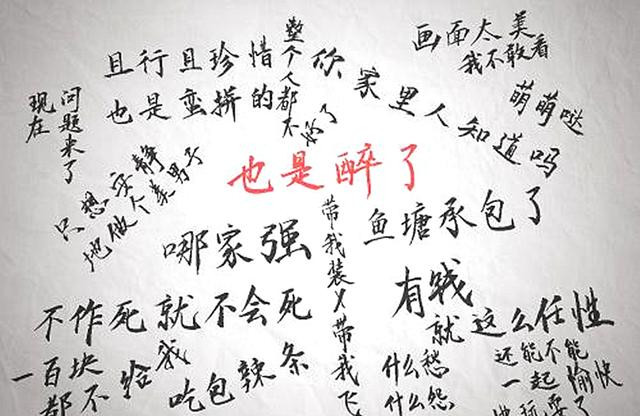 整个人都不好了
画面太美
我不敢看
且行且珍惜
你家里人知道吗
也是蛮拼的
萌萌哒
现在
问题来了
只想安静
地做个美男子
也是醉了
哪家强
带我装X带我飞
鱼塘承包了
有钱
就这么任性
不作死就不会死
一百块
都不给我
吃包辣条
什么愁
什么怨
还能不能
一起愉快